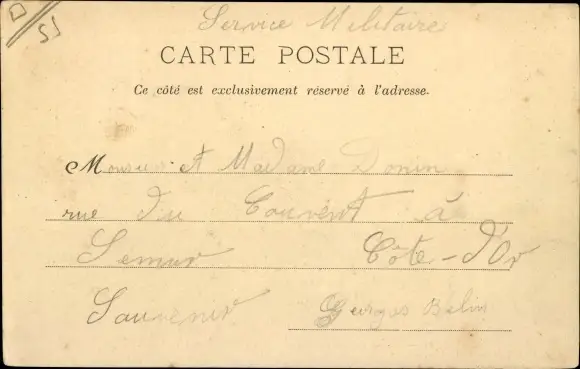 Service Militaire
CARTE POSTALE
Ce côté est exclusivement réservé à l'adresse.
Monsieur et Madame Donin
rue du Couvent à
Semur Côte-d'Or
Souvenir Georges Belin